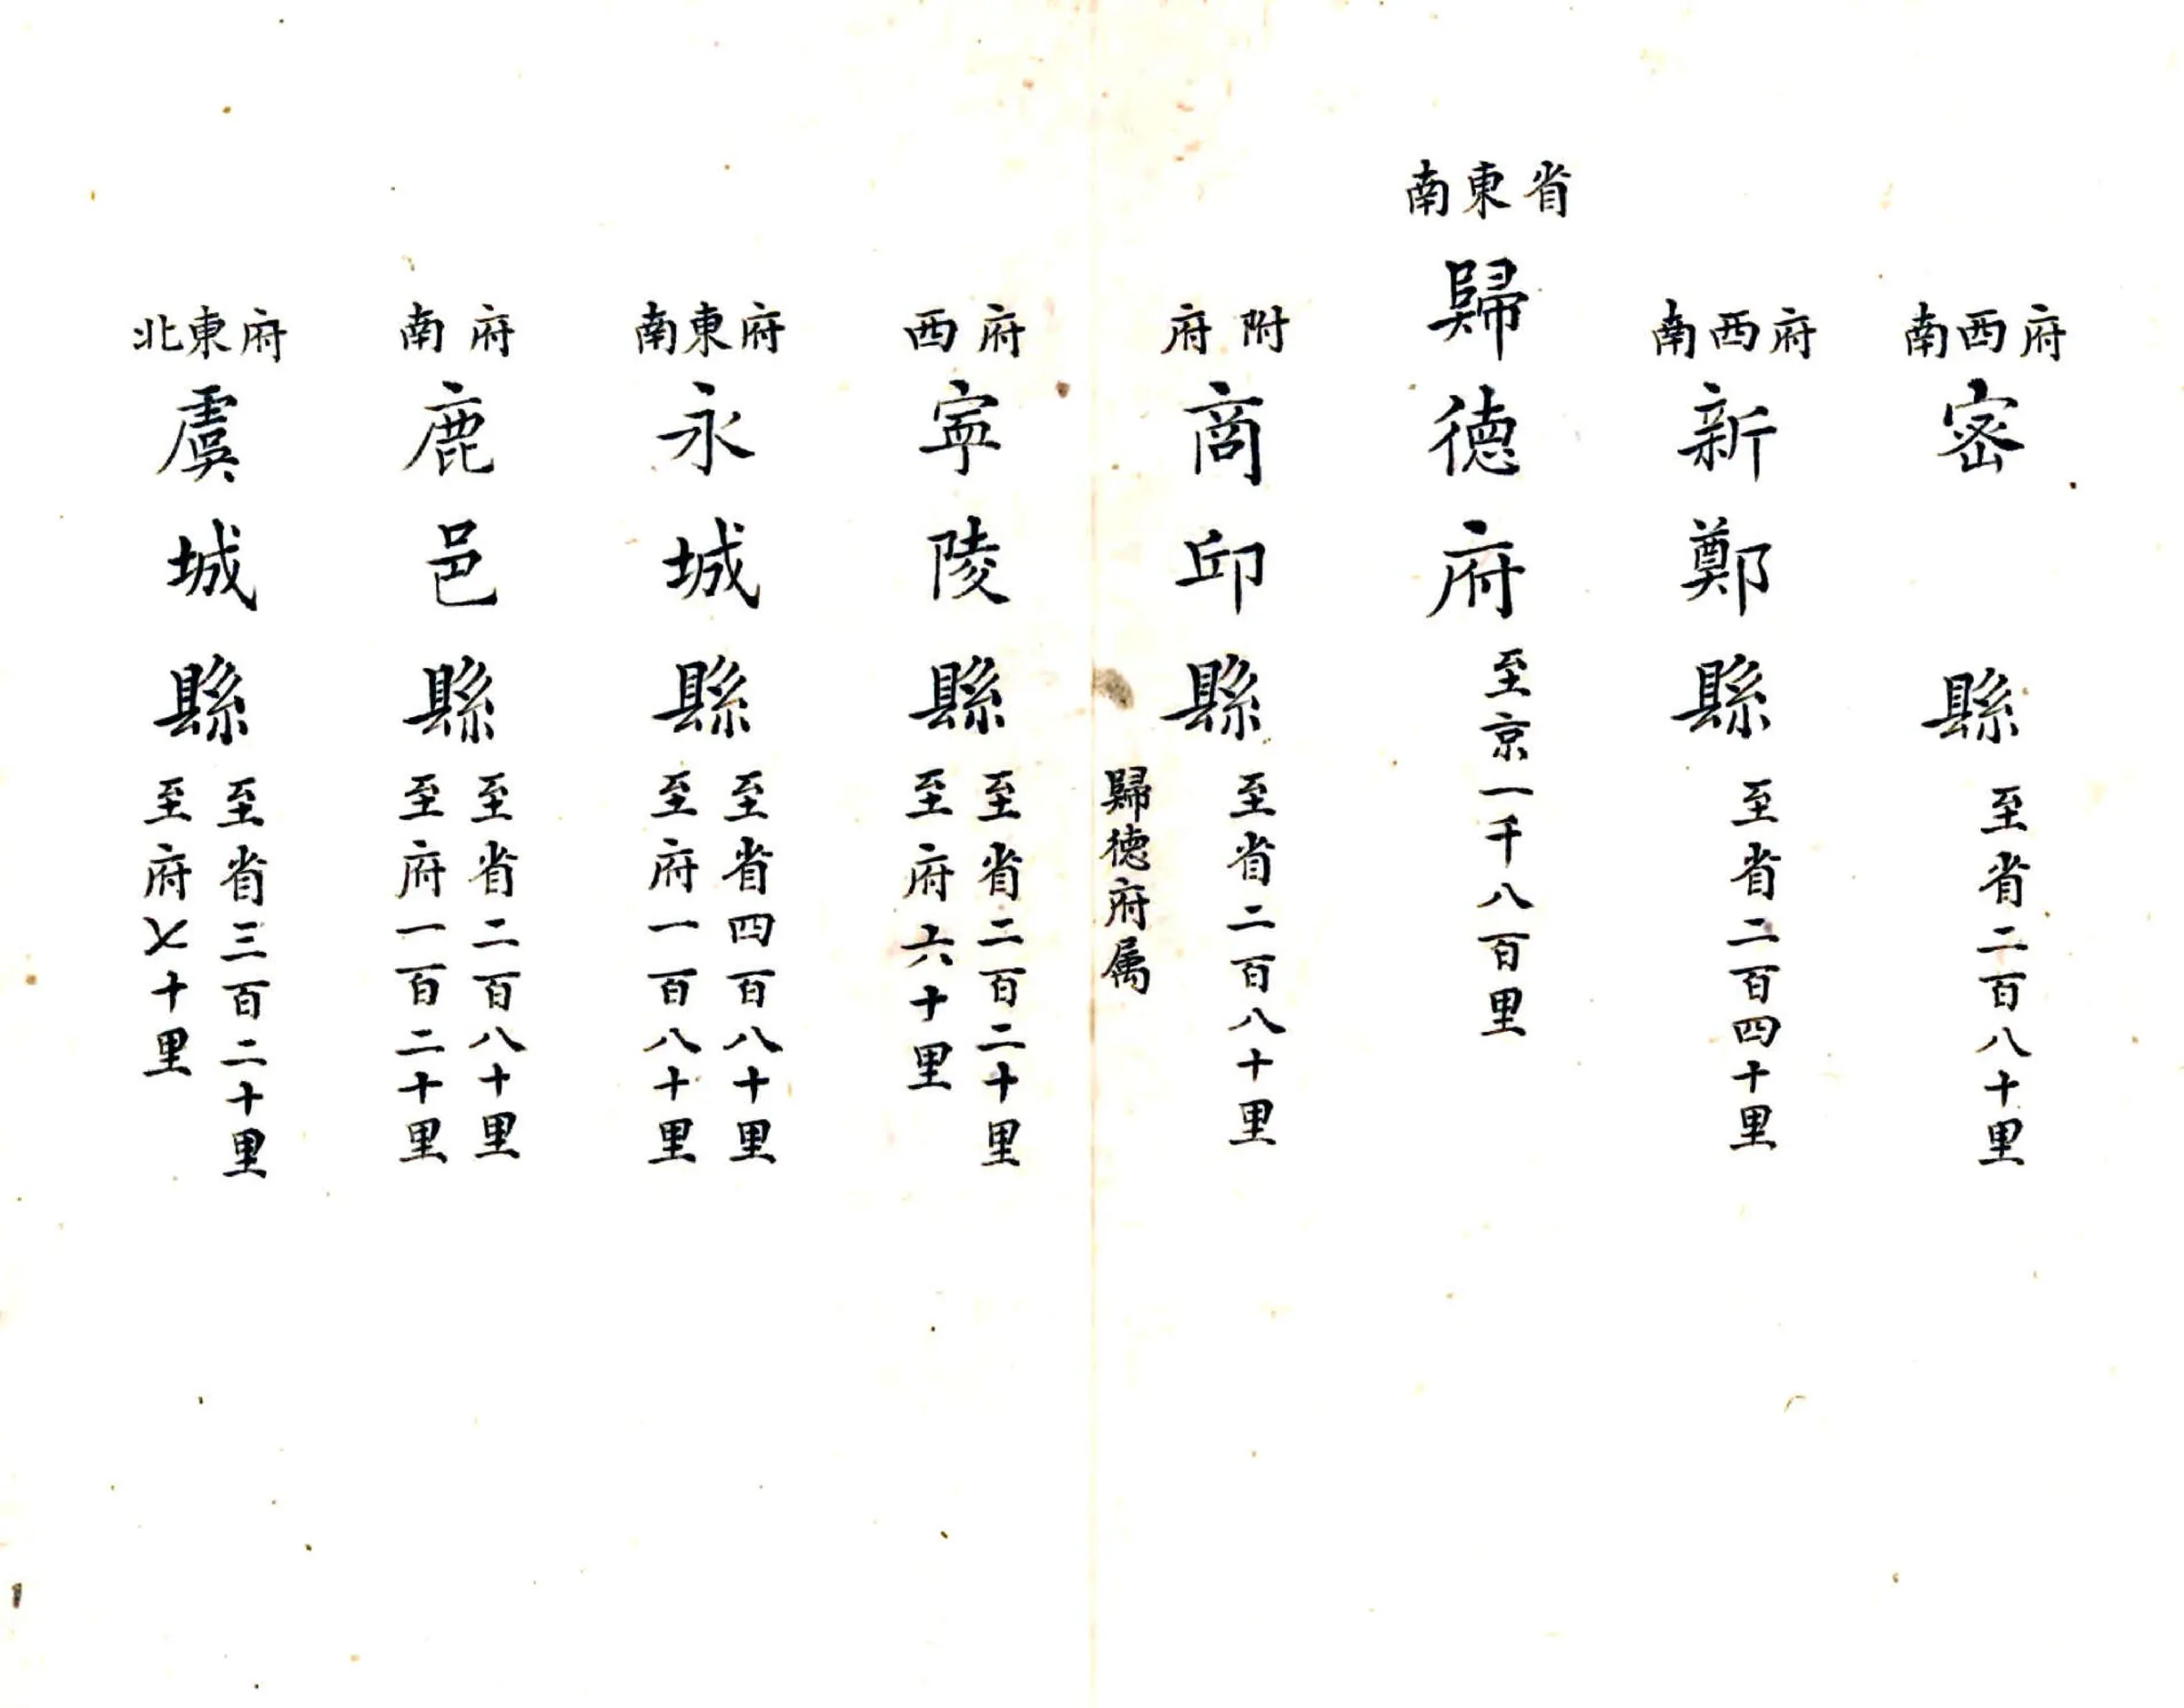 府西南
密縣
至省二百八十里
府西南
新鄭縣
至省二百四十里
省東南
歸德府
至京一千八百里
附府
商邱縣
至省二百八十里
歸德府属
府西
寕陵縣
至省二百二十里
至府六十里
府東南
永城縣
至省四百八十里
至府一百八十里
府南
鹿邑縣
至省二百八十里
至府一百二十里
府東北
虞城縣
至省三百二十里
至府七十里